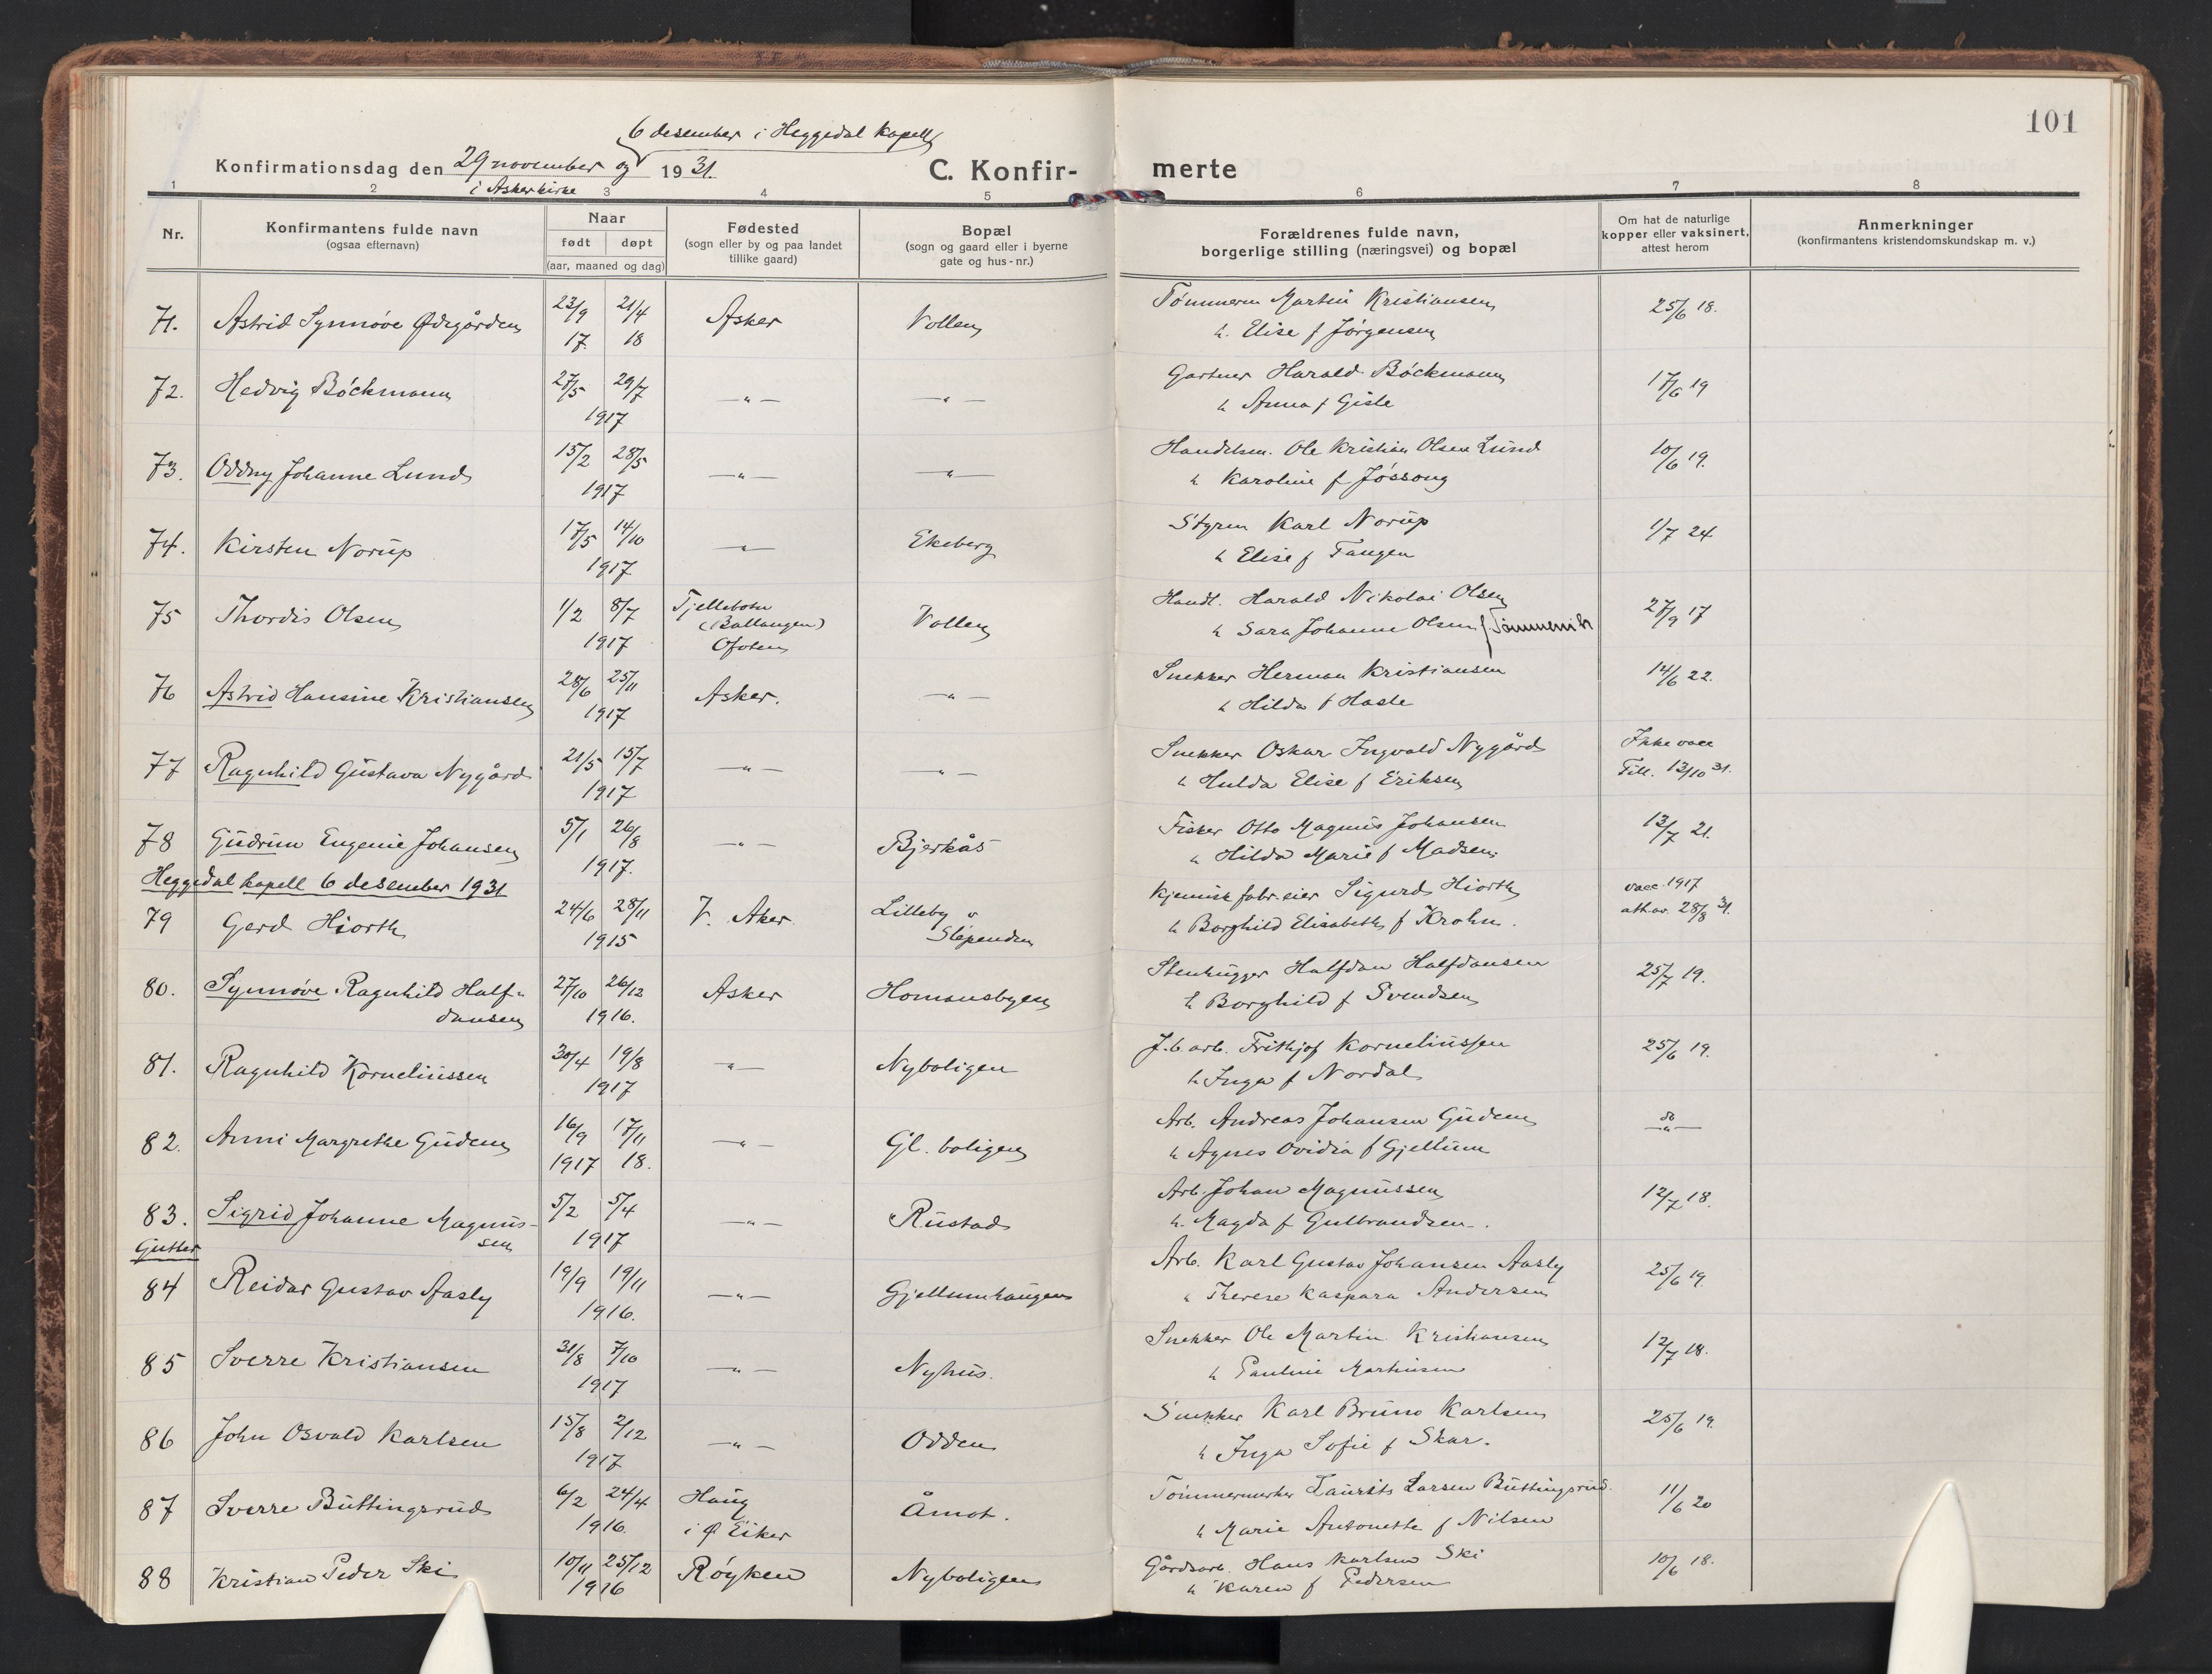 101
6 desember i Heggedal kapell
Konfirmationsdag den 29 november og 1931. C. Konfirmerte
i Asker kirke
1 2 3 4 5 6 7 8
Nr. Konfirmantens fulde navn (ogsaa efternavn) Naar født døpt (aar, maaned og dag) Fødested (sogn eller by og paa landet tillike gaard) Bopæl (sogn og gaard eller i byerne gate og hus-nr.) Forældrenes fulde navn, borgerlige stilling (næringsvei) og bopæl Om hat de naturlige kopper eller vaksinert, attest herom Anmerkninger (konfirmantens kristendomskundskap m. v.)
71. Astrid Synnøve Ødegården 23/9 17. 21/4 18 Asker Vollen Tømmerm Martin Kristiansen 25/6 18.
h. Elise f Jørgensen
72. Hedvig Böckmann 27/5 29/7 1917 —"— —"— Gartner Harald Böckmann 17/6 19
h Anna f Gisle
73. Oddny Johanne Lund 15/2 28/5 1917 —"— —"— Handelsm. Ole Kristian Olsen Lund 10/6 19.
h Karoline f Jøssong
74. Kirsten Norup 17/5 14/10 1917 —"— Ekeberg Styrm Karl Norup 1/7 24
h Elise f Tangen
75 Thordis Olsen 1/2 8/7 1917 Tjellebotn (Ballangen) Ofoten Vollen Handl. Harald Nikolai Olsen 27/9 17
h Sara Johanne Olsen f.
76 Astrid Hansine Kristiansen 28/6 25/11 1917 Asker. —"— Snekker Herman Kristiansen 14/6 22.
h Hilda f Hasle
77 Ragnhild Gustava Nygård 21/5 15/7 1917 —"— —"— Snekker Oskar Ingvald Nygård Ikke vacc
h Hulda Elise f Eriksen Till. 13/10 31.
78 Gudrun Eugenie Johansen 5/1 26/8 1917. —"— Bjerkås Fisker Otto Magnus Johansen 13/7 21.
h Hilda Marie f Madsen.
Heggedal kapell 6 desember 1931
79 Gerd Hiorth 24/6 28/11 1915 V. Aker. Lilleby Slependen Kjemisk fabr.eier Sigurd Hiorth vacc. 1917
h Borghild Elisabeth f Krohn. att.av. 28/8 31.
80. Synnøve Ragnhild Halfdansen 27/10 26/12 1916. Asker Homansbyen Stenhugger Halfdan Halfdansen 25/7 19.
h Borghild f Svendsen
81. Ragnhild Korneliussen 30/4 19/8 1917 —"— Nyboligen J.b arb. Frithjof Korneliussen 25/6 19.
h Inga f Nordal
82. Anni Margrethe Gudem 16/9 1917 17/11 18. —"— Gl. boligen Arb. Andreas Johansen Gudem do —"—
h Agnes Ovidia f Gjellum
83. Sigrid Johanne Magnussen 5/2 5/4 1917 —"— Rustad Arb. Johan Magnussen 12/7 18.
h. Magda f Gulbrandsen.
Gutter
84 Reidar Gustav Aasly 19/9 19/11 1916. —"— Gjellumhaugen Arb. Karl Gustav Johansen Aasly 25/6 19.
" Therese Kaspara Andersen
85 Sverre Kristiansen 31/8 7/10 1917 —"— Nyhus. Snekker Ole Martin Kristiansen 12/7 18.
h Pauline Martinsen
86 John Osvald Karlsen 15/8 2/12 1917 —"— Odden Snekker Karl Bruno Karlsen 25/6 19.
h Inga Sofie f Skar.
87 Sverre Buttingsrud 6/2 24/4 1916. Haug i Ø Eiker Åmot. Tømmermerker Laurits Larsen Buttingsrud. 11/6 20
h Marie Antonette f Nilsen
88 Kristian Peder Ski 10/11 25/12 1916 Røyken Nyboligen Gårdsarb. Hans Karlsen Ski 10/6 18.
h Karen f Pedersen